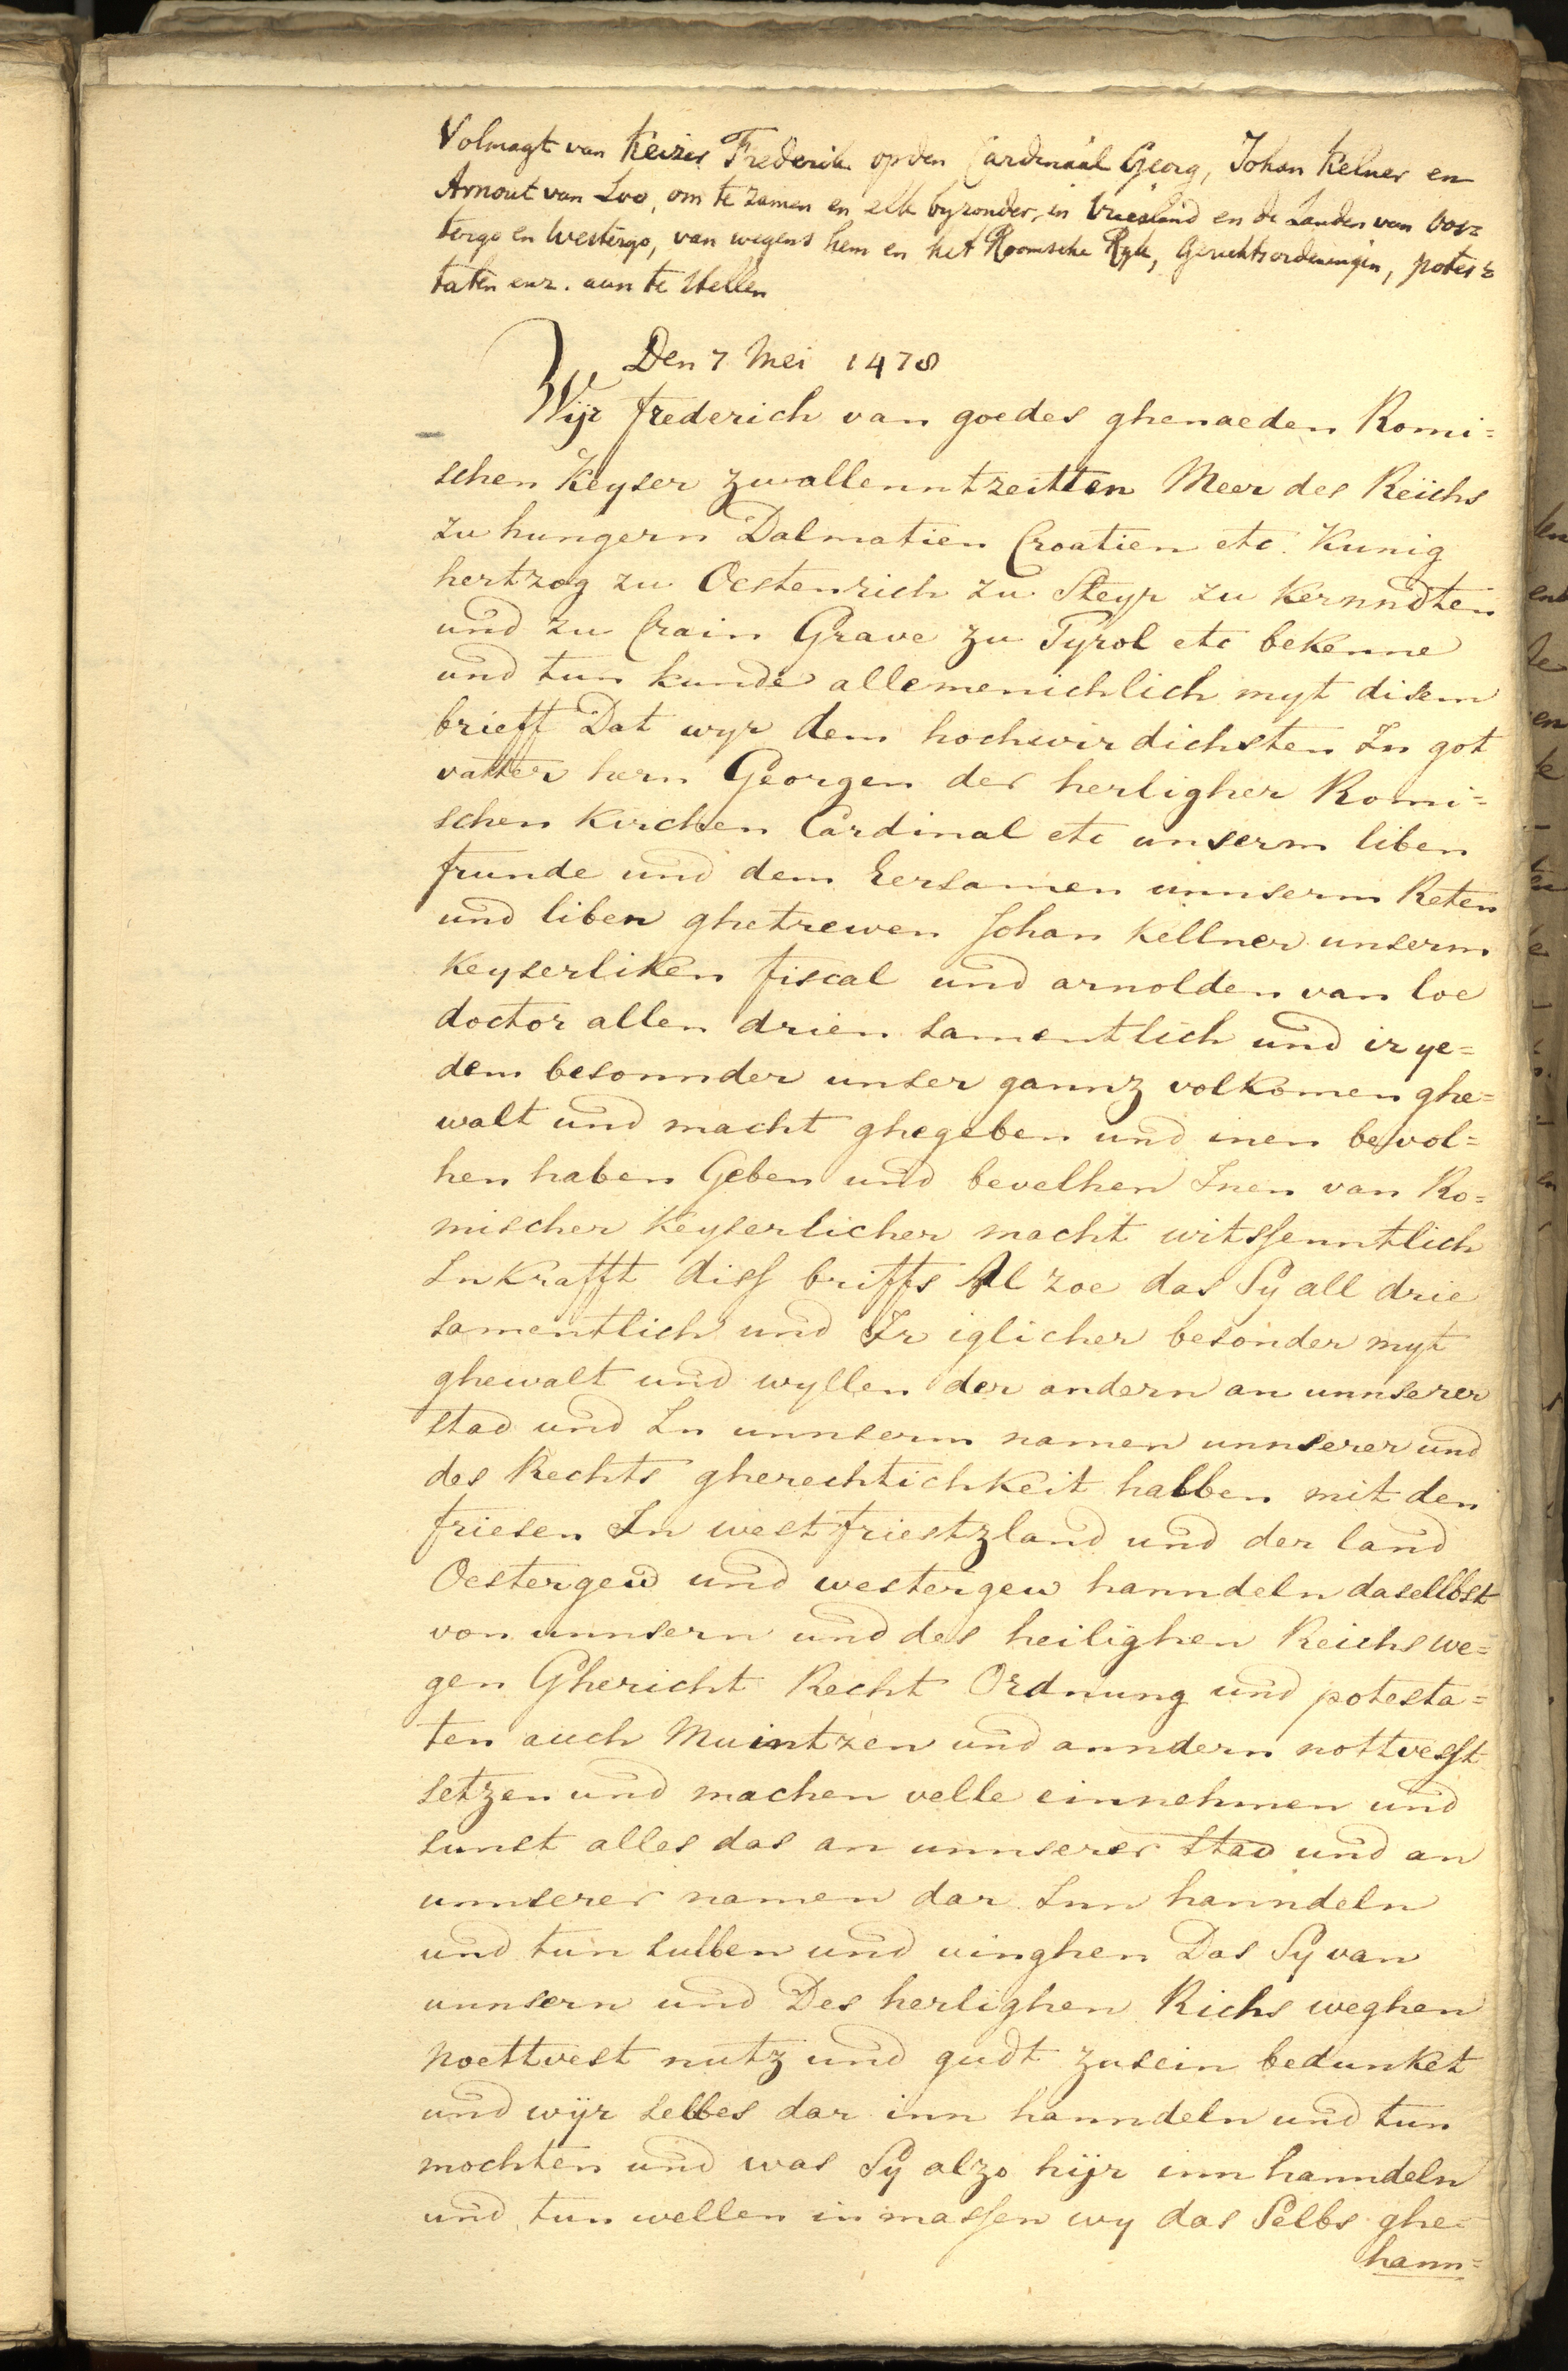 Volmagt van Keizer Frederik op den Cardinaal Georg, Johan Kelner en
Arnout van Loo, om te zamen en elk byzonder, in Vriesland en de Landen van Oos=
tergo en Westergo, van wegens hem en het Roomsche Ryk, Gerichtsordeningen, potes=
taten enz. aan te stellen
Den 7 Mei 1478
Wijr frederich van goedes ghenaeden Romi=
schen Keyser zwallenntzeitten Meer des Reichs
zu hungern Dalmatien Croatien etc. Kunig
hertzog zu Oestenrich zu Steyr zu Kernndten
und zu Crain Grave zu Tyrol etc bekenne
und tun kunde allemenichlich myt disem
brieff Dat wyr dem hochwirdichsten In got
vatter hern Georgen der herligher Romi=
schen Kirchen Cardinal etc unserm liben
frunde und dem Eersamen unnserm Reten
und liben ghetrewen Johan Kellner unserm
Keyserliken fiscal und arnolden van loe
doctor allen drien samentlich und ir ye=
dem besonnder unser gannz volkomen ghe=
walt und macht ghegeben und inen bevol=
hen haben Geben und bevelhen Inen van Ro=
mischer Keyserlicher macht witssenntlich
In Krafft diss briffs Al zoe das Sy all drie
samentlich und Ir iglicher besonder myt
ghewalt und wyllen der andern an unnserer
stad und In unnserm namen unnserer und
des Rechts gherechtichkeit halben mit den
friesen In westfriestzland und der land
Oestergew und westergew hanndeln daselbst
von unnsern und des heilighen Reichs we=
gen Ghericht Recht Ordnung und potesta=
ten auch Muintzen und anndern nottvesst
setzen und machen velle einnehmen und
sunst alles das an unnserer stad und an
unnserer namen dar Inn hanndeln
und tun sullen und vinghen Das Sy van
unnsern und Des herlighen Richs weghen
noettvest nutz und gudt zusein bedunket
und wijr selbes dar inn hanndeln und tun
mochten und was Sy alzo hijr inn hanndeln
und tun wellen in massen wy das Selbs ghe=
hann=